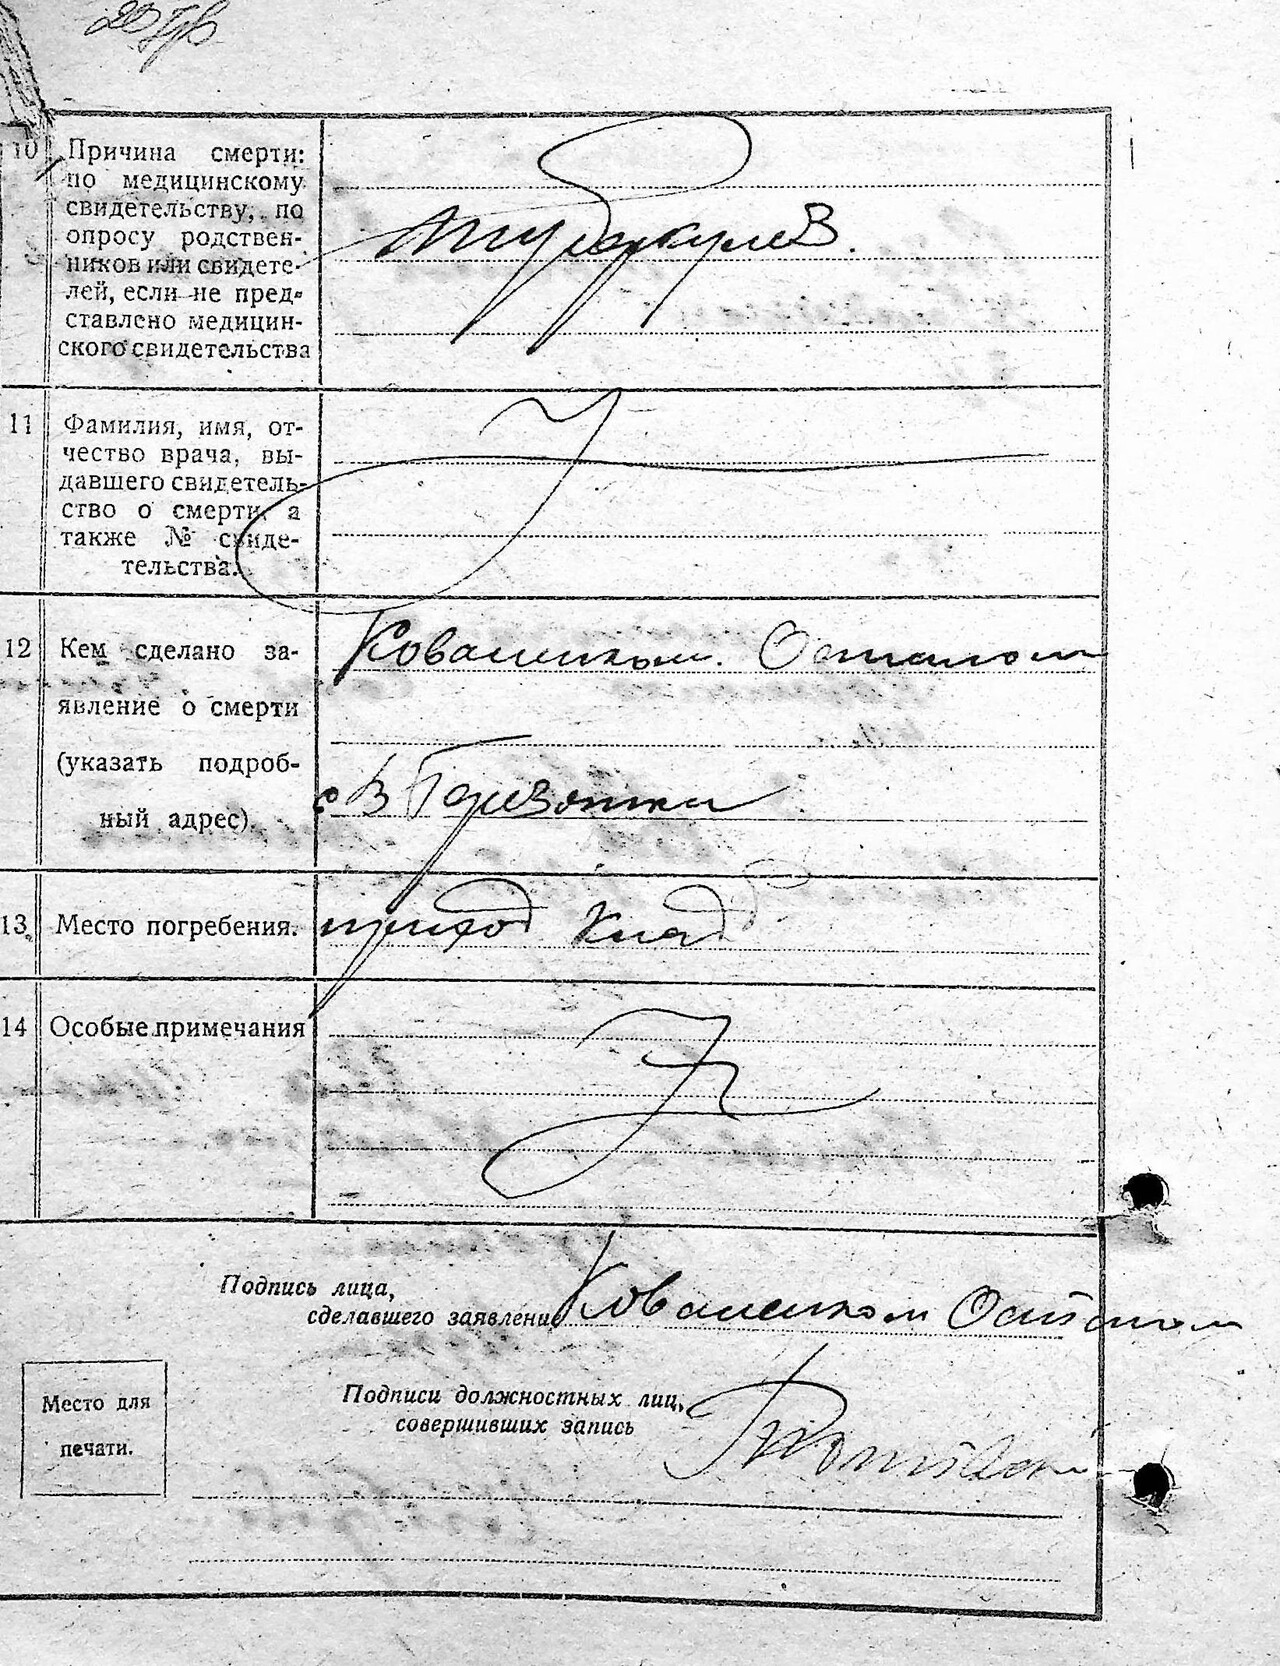 10 Причина смерти:
по медицинскому
свидетельству, по
опросу родствен-
ников или свидете-
лей, если не пред-
ставлено медицин-
ского свидетельства
туберкулез.
11 Фамилия, имя, от-
чество врача, вы-
давшего свидетель-
ство о смерти, а
также № свиде-
тельства.
12 Кем сделано за-
явление о смерти
(указать подроб-
ный адрес).
Коваленком Остапом
с В Березянки
13. Место погребения.
приход Клад
14 Особые примечания
Подпись лица,
сделавшего заявление
Коваленком Остапом
Подписи должностных лиц,
совершивших запись
Место для
печати.